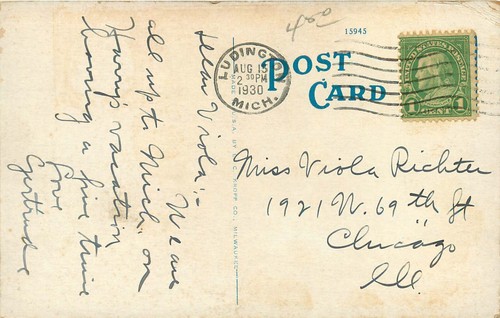 4 50
15945
POST CARD
LUDINGTON
AUG 15
2 30 PM
1930
MICH.
UNITED STATES POSTAGE
1 1
Dear Viola:-
We are
all up to Mich. on
Harry's vacation
having a fine time
Love
Gertrude
MADE
CO., MILWAUKEE
Miss Viola Richter
1921 N. 69 th St
Chicago
Ill.